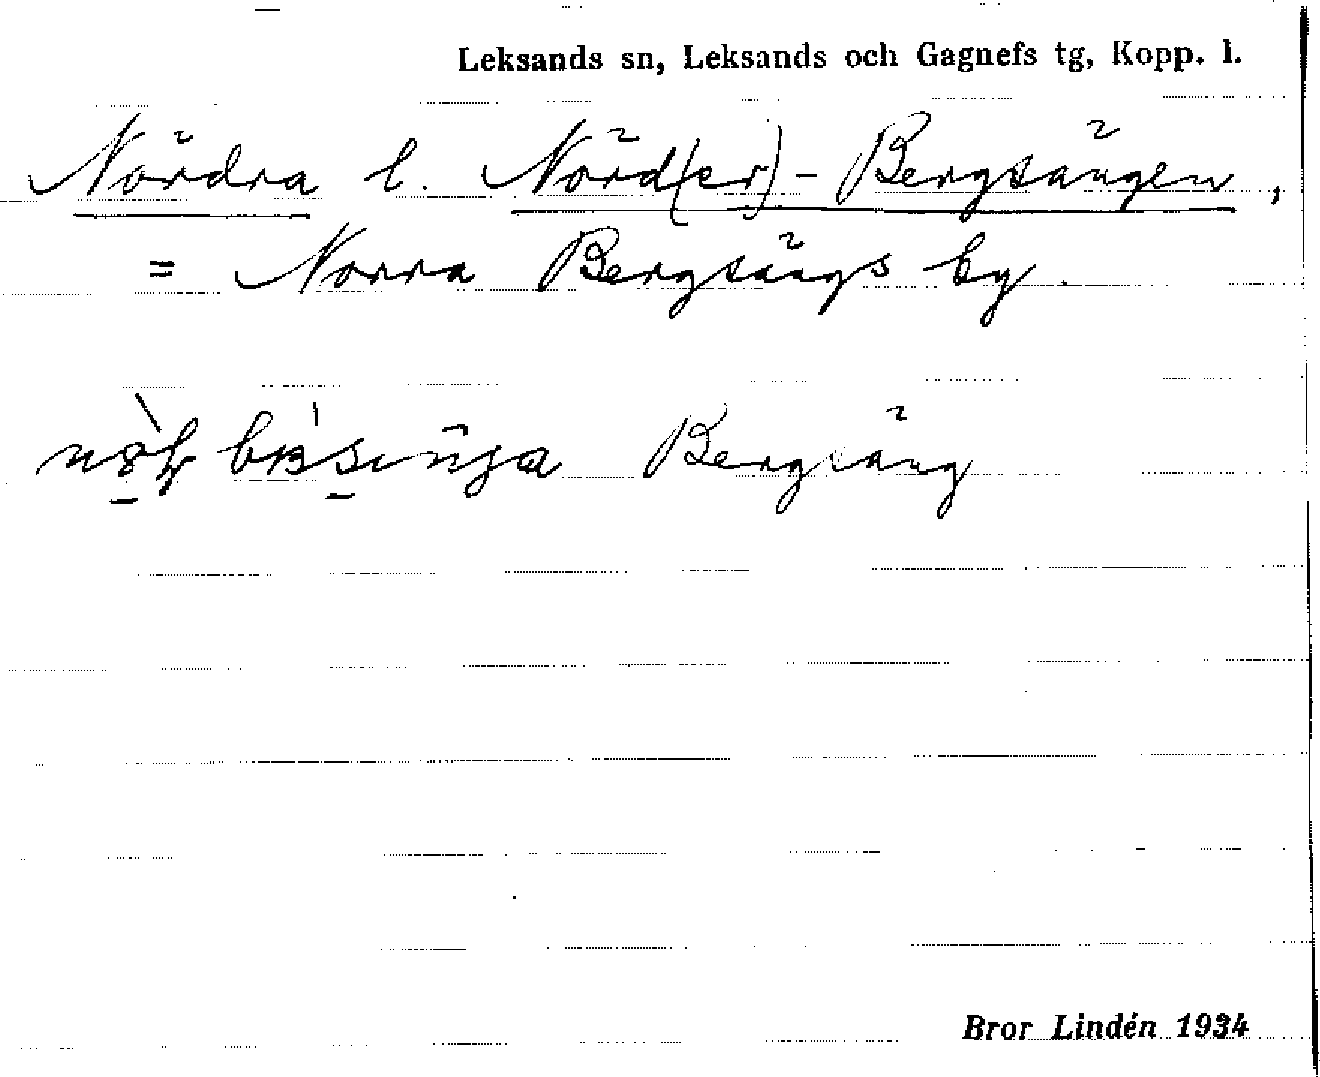 Leksands sn, Leksands och Gagnefs tg, Kopp. l.
Nördra l. Nörd(er)-Bergsängen,
= Norra Bergsängs by.
Bergsäng
Bror Lindén 1934